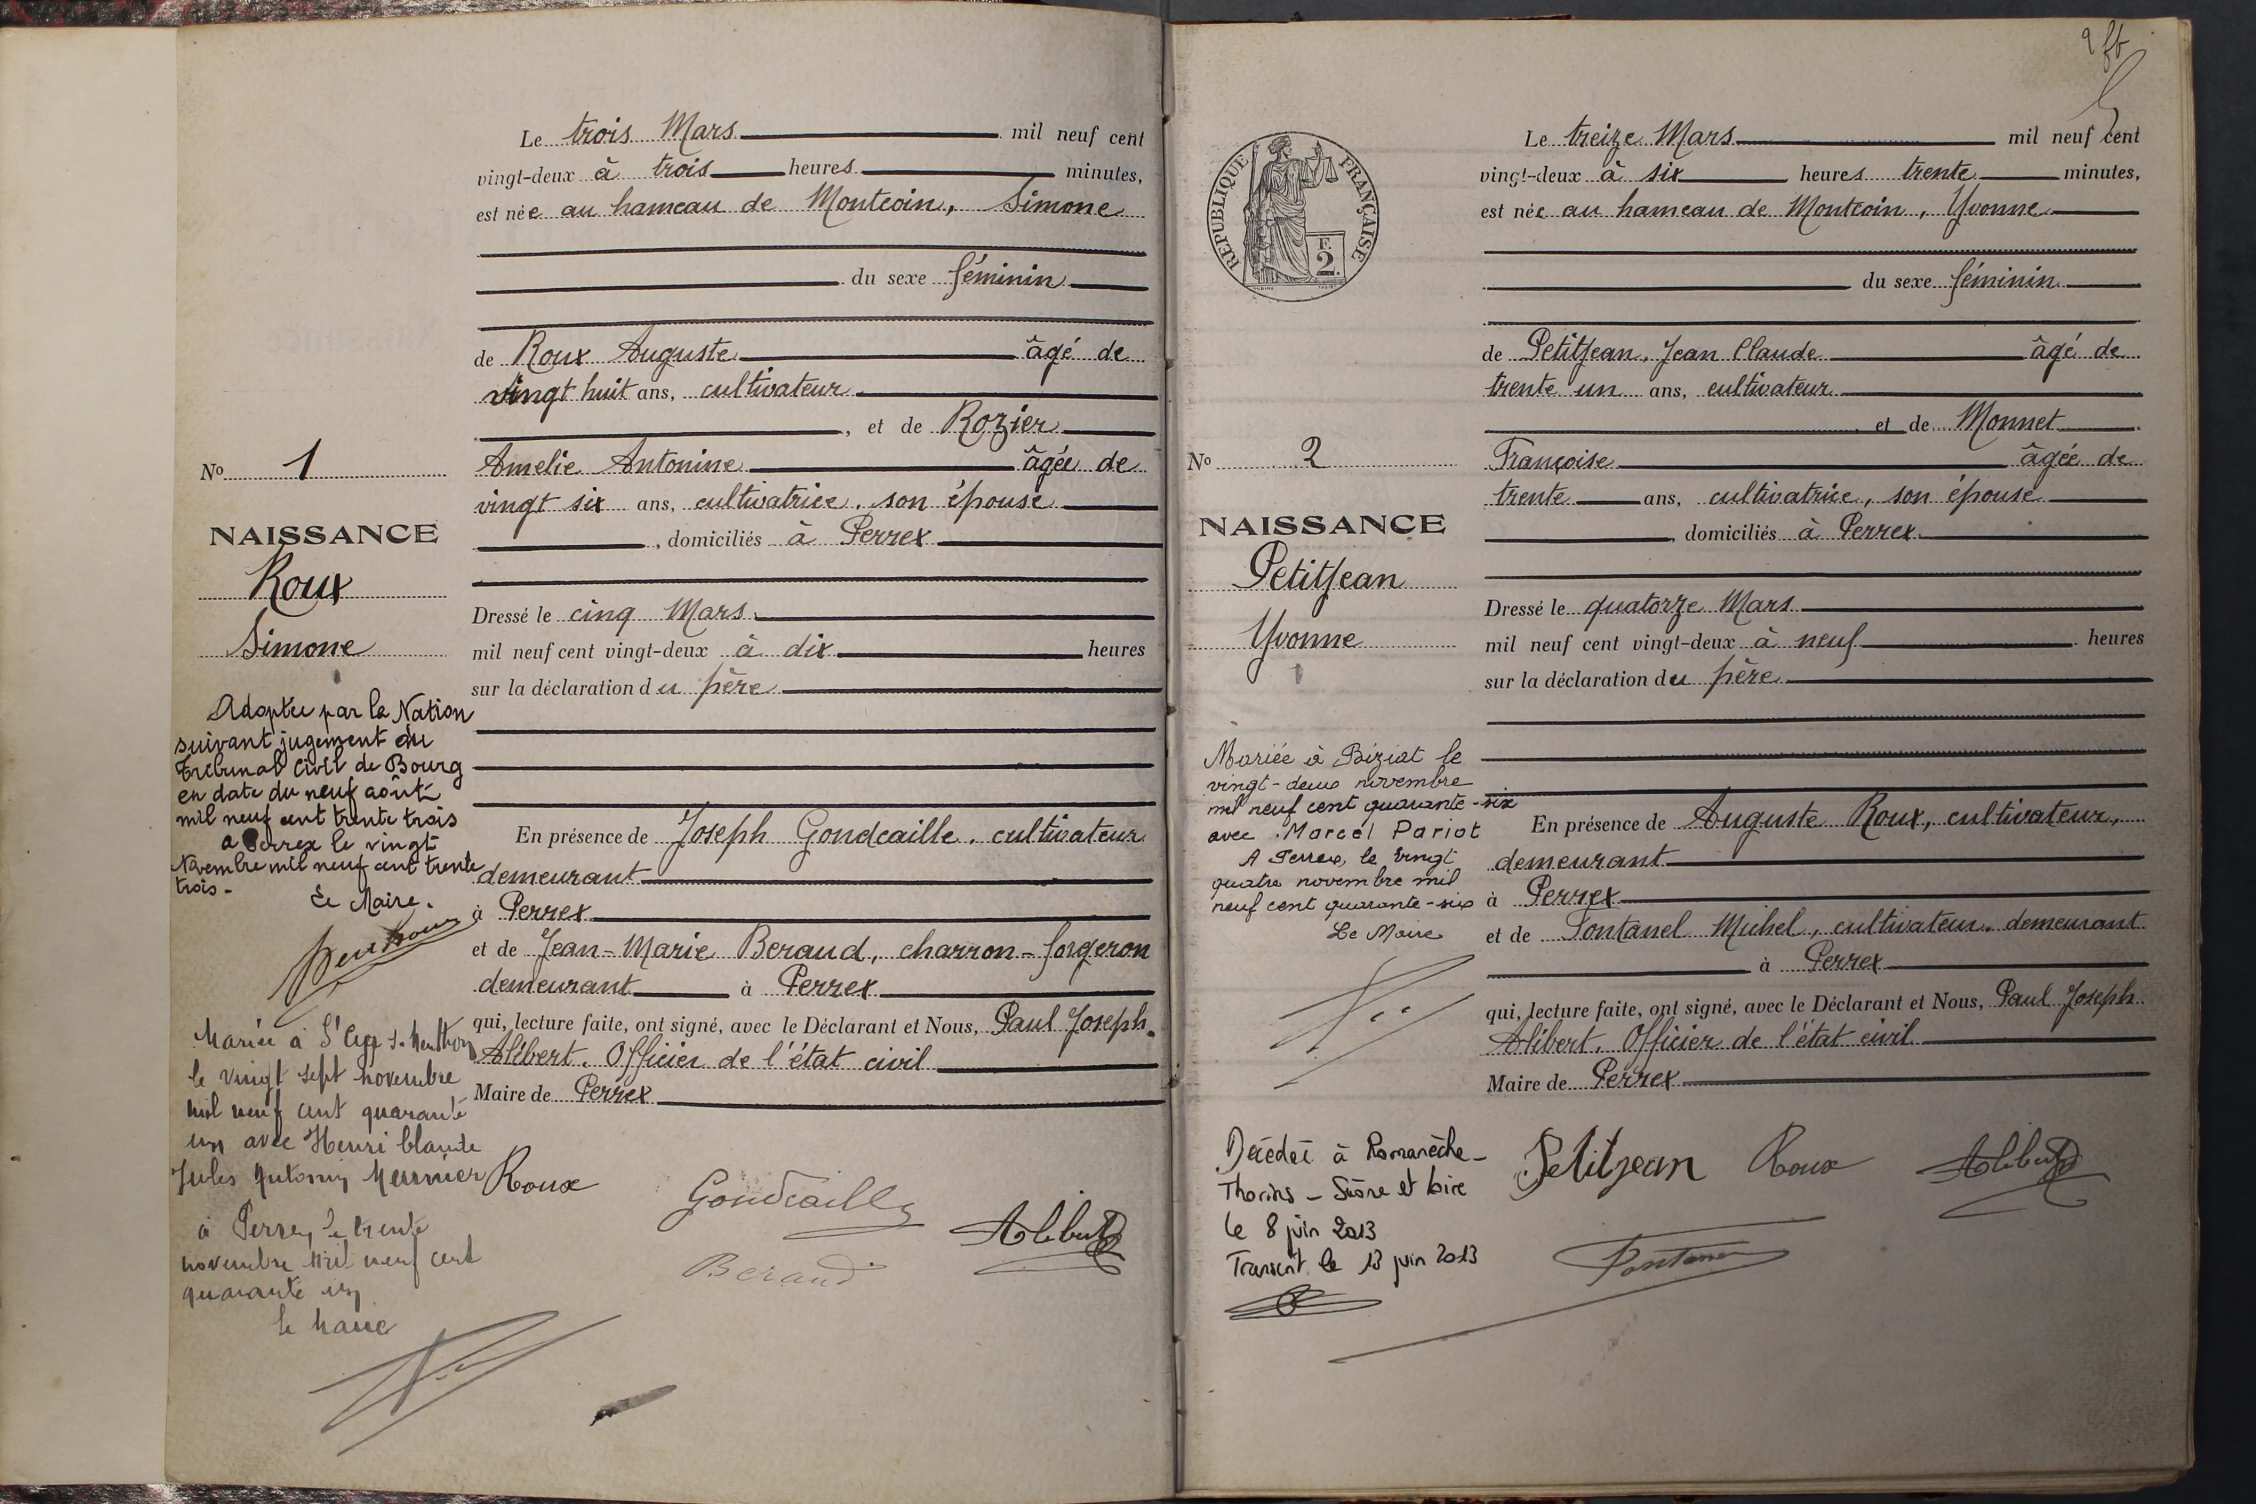 Le trois Mars mil neuf cent
vingt-deux à trois heures minutes,
est née au hameau de Montcoin, Simone
du sexe féminin
de Roux Auguste âgé de
vingt huit ans, cultivateur
, et de Rozier
Amelie Antonine âgée de
vingt six ans, cultivatrice, son épouse
, domiciliés à Perrex
Dressé le cinq Mars
mil neuf cent vingt-deux à dix heures
sur la déclaration du père
En présence de Joseph Gondcaille, cultivateur
demeurant
à Perrex
et de Jean-Marie Beraud, charron-forgeron
demeurant à Perrex
qui, lecture faite, ont signé, avec le Déclarant et Nous, Paul Joseph
Alibert, Officier de l'état civil
Maire de Perrex
Roux
Gondcaille
Alibert
Beraud
No 1
NAISSANCE
Roux
Simone
Adoptée par la Nation
suivant jugement du
Tribunal Civil de Bourg
en date du neuf août
mil neuf cent trente trois
a Perrex le vingt
Novembre mil neuf cent trente
trois -
Le Maire.
Mariée à St Cyr s. Menthon
le vingt sept novembre
mil neuf cent quarante
un avec Henri Claude
Jules Antonin Meunier
à Perrex, le trente
novembre mil neuf cent
quarante un
le Maire
RÉPUBLIQUE FRANÇAISE
F.
2.
No 2
NAISSANCE
PetitJean
Yvonne
Mariée à Biziat le
vingt-deux novembre
mil neuf cent quarante-six
avec Marcel Pariot
A Perrex, le vingt
quatre novembre mil
neuf cent quarante-six
Le Maire
Décédée à Romanèche-
Thorins - Saône et Loire
le 8 juin 2013
Transcrit le 13 juin 2013
Le treize Mars mil neuf cent
vingt-deux à six heures trente minutes,
est née au hameau de Montcoin, Yvonne
du sexe féminin
de PetitJean, Jean Claude âgé de
trente un ans, cultivateur
et de Monnet
Françoise âgée de
trente ans, cultivatrice, son épouse
, domiciliés à Perrex
Dressé le quatorze Mars
mil neuf cent vingt-deux à neuf heures
sur la déclaration du père
En présence de Auguste Roux, cultivateur,
demeurant
à Perrex
et de Fontanel Michel, cultivateur, demeurant
à Perrex
qui, lecture faite, ont signé, avec le Déclarant et Nous, Paul Joseph
Alibert, Officier de l'état civil
Maire de Perrex
Petitjean Roux Alibert
Fontanel